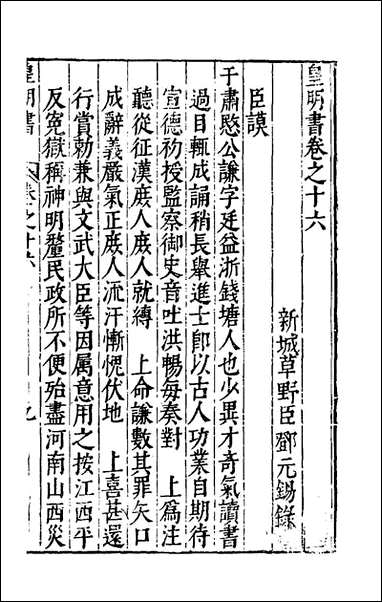 皇明書卷之十六
新城草野臣鄧元錫錄
臣謨
于肅愍公謙字廷益浙錢塘人也少異才奇氣讀書
過目輒成誦稍長舉進士卽以古人功業自期待
宣德初授監察御史音吐洪暢每奏對　上爲注
聽從征漢庶人庶人就縛　上命謙數其罪矢口
成辭義嚴氣正庶人流汗慚愧伏地　上喜甚還
行賞勑兼與文武大臣等因属意用之按江西平
反冤獄稱神明釐民政所不便殆盡河南山西災
皇明書　卷之十六